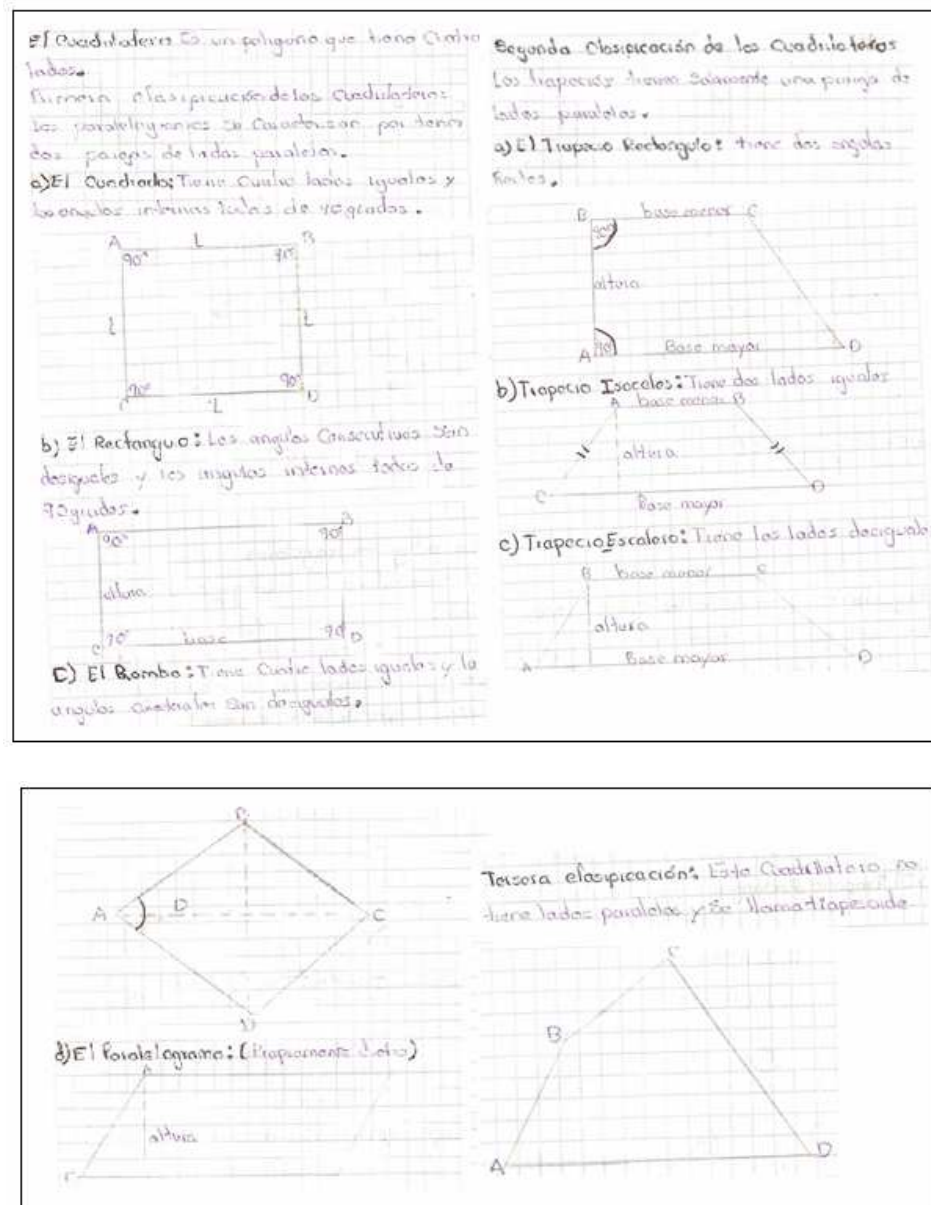 El Cuadrilatero Es un poligono que tiene Cuatro
lados.
Primera clasificación de los Cuadrilateros:
Los paralelogramos se Caracterizan por tener
dos parejas de lados paralelos.
a) El Cuadrado: Tiene Cuatro lados iguales y
los angulos internos todos de 90 grados.
A L B
90° 90°
L L
90° 90°
C L D
b) El Rectanguo: Los angulos Consecutivos Son
desiguales y los angulos internos todos de
90 grados.
A B
90° 90°
altura
90° base 90°
C D
C) El Rombo: Tiene Cuatro lados iguales y lo
angulos son desiguales.
Segunda Clasificación de los Cuadrilateros
Los trapecios tienen Solamente una pareja de
lados paralelos.
a) El Trapecio Rectangulo: tiene dos angulos
Rectos.
B base menor C
90°
altura
90°
A Base mayor D
b) Trapecio Isoceles: Tiene dos lados iguales
A base menor B
altura
C D
Base mayor
c) Trapecio Escaleno: Tiene los lados desiguale
B base menor C
altura
A Base mayor D
B
A D C
D
d) El Paralelogramo: (Propiamente dicho)
A
altura
C
Tersera clasificación: Este Cuadrilatero no
tiene lados paralelos y Se llama trapezoide
C
B
A D